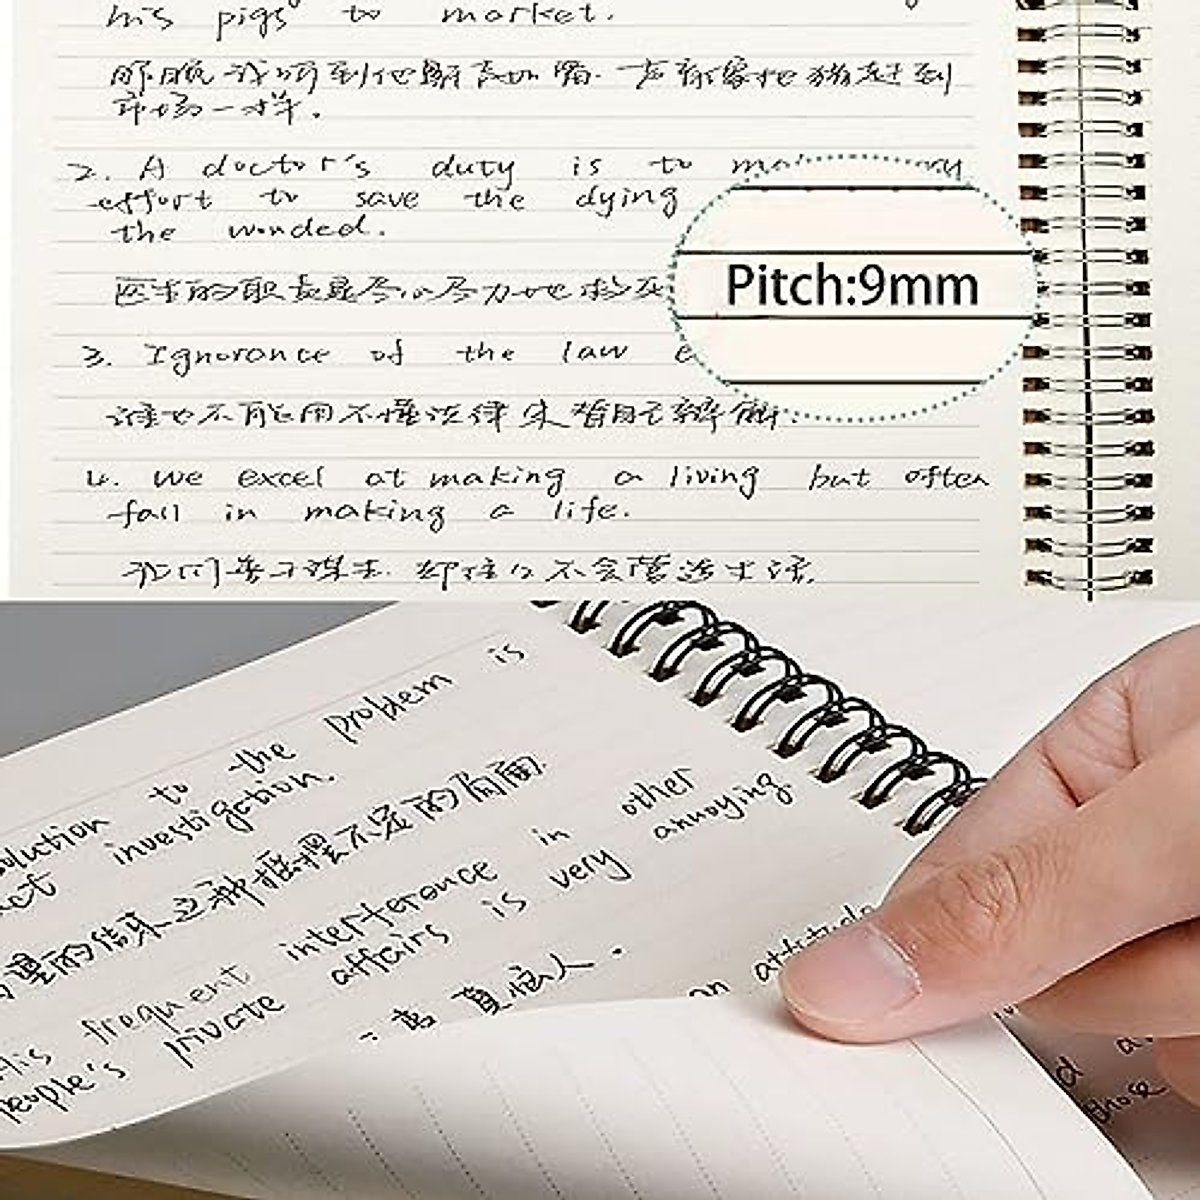 his pigs to market.
昨晚我听到他鼾声如雷. 声音像把猪赶到
市场一样.
2. A doctor's duty is to
effort to save the dying
the wonded.
医生的职责是尽心尽力地救死
Pitch:9mm
3. Ignorance of the law
谁也不能用不懂法律来替自己辩解.
4. We excel at making a living but often
fall in making a life.
我们善于谋生. 却往往不会营造生活.
solution to the problem is
investigation.
的结果之神摇摆不定的局面
His frequent interference in other
people's private affairs is very annoying
真恼人.
an attitude
those